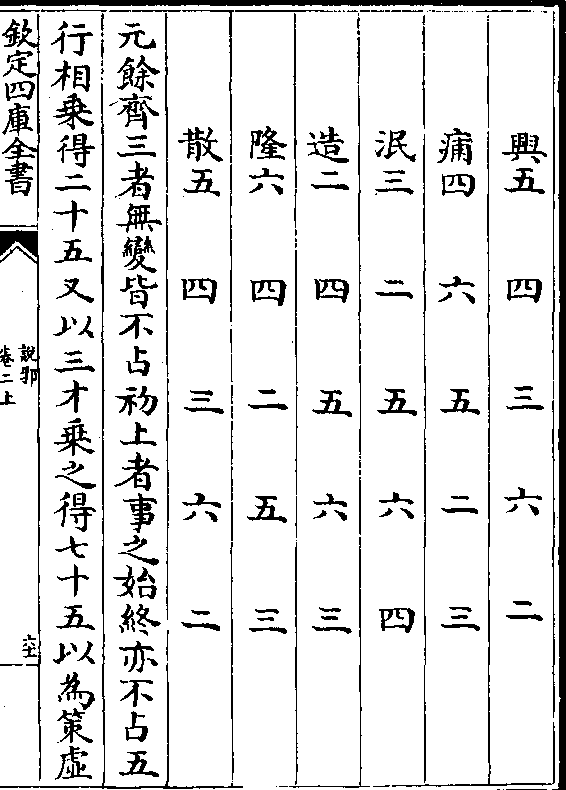 興五 四 三 六 二
痡四 六 五 二 三
泯三 二 五 六 四
造二 四 五 六 三
隆六 四 二 五 三
散五 四 三 六 二
元餘齊三者無變皆不占初上者事之始終亦不占五
行相乘得二十五又以三才乘之得七十五以為策虛
欽定四庫全書
說郛
卷二上